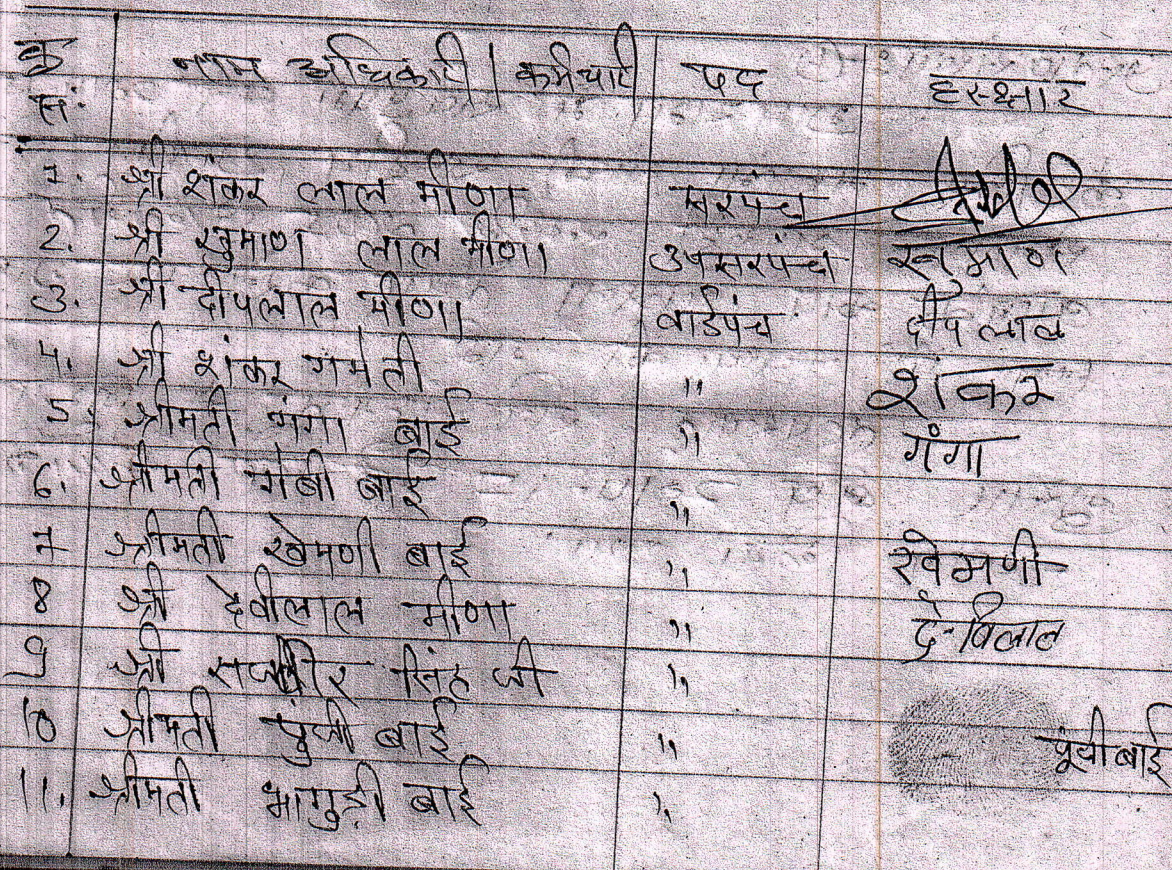 क्र नाम अधिकारी / कर्मचारी पद हस्क्षार
सं.
1. श्री शंकर लाल मीणा सरपंच
2. श्री खुमाण लाल मीणा उपसरपंच खुमाण
3. श्री दीपलाल मीणा वार्डपंच दीपलाल
4. श्री शंकर गमेती " शंकर
5. श्रीमती गंगा बाई " गंगा
6. श्रीमती गोबी बाई "
7 श्रीमती खेमणी बाई " खेमणी
8 श्री देवीलाल मीणा " देविलाल
9 श्री सिंह जी "
10 श्रीमती पुंजी बाई " पूंजी बाई
11. श्रीमती भागुड़ी बाई "